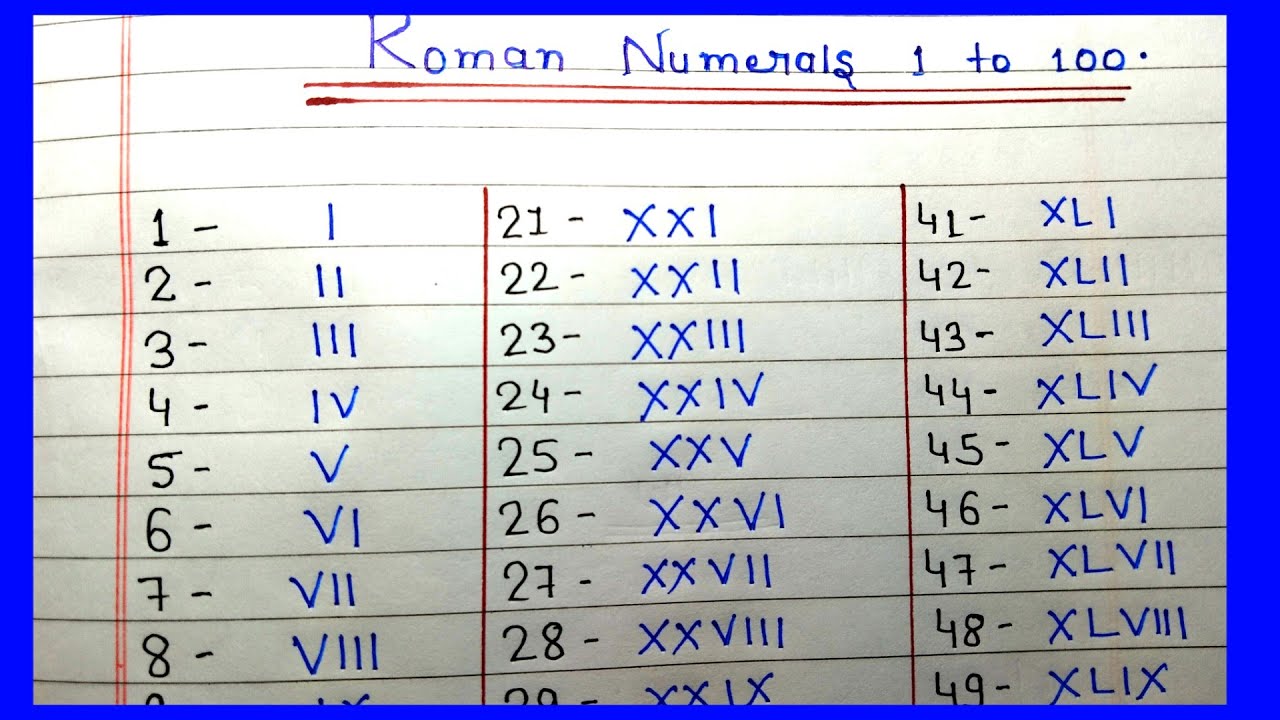 Roman Numerals 1 to 100.
1 - I 21 - XXI 41 - XLI
2 - II 22 - XXII 42 - XLII
3 - III 23 - XXIII 43 - XLIII
4 - IV 24 - XXIV 44 - XLIV
5 - V 25 - XXV 45 - XLV
6 - VI 26 - XXVI 46 - XLVI
7 - VII 27 - XXVII 47 - XLVII
8 - VIII 28 - XXVIII 48 - XLVIII
9 IX 29 - XXIX 49 - XLIX